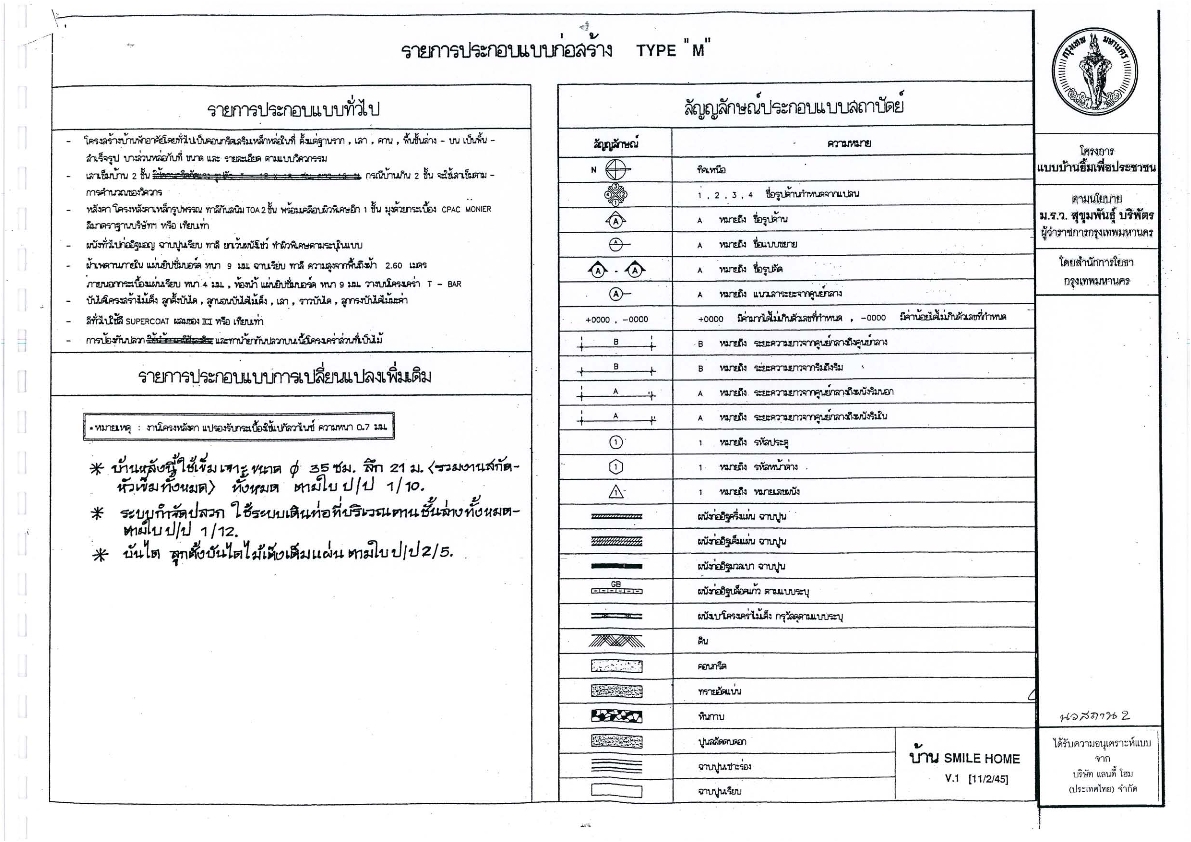 รายการประกอบแบบก่อสร้าง TYPE "M"
รายการประกอบแบบทั่วไป
- โครงสร้างบ้านพักอาศัยโดยทั่วไปเป็นคอนกรีตเสริมเหล็กหล่อในที่ ตั้งแต่ฐานราก , เสา , คาน , พื้นชั้นล่าง - บน เป็นพื้น -
สำเร็จรูป บางส่วนหล่อกับที่ ขนาด และ รายละเอียด ตามแบบวิศวกรรม
- เสาเข็มบ้าน 2 ชั้น กรณีบ้านเกิน 2 ชั้น จะใช้เสาเข็มตาม -
การคำนวณของวิศวกร
- หลังคา โครงหลังคาเหล็กรูปพรรณ ทาสีกันสนิม TOA 2 ชั้น พร้อมเคลือบผิวพิเศษอีก 1 ชั้น มุงด้วยกระเบื้อง CPAC MONIER
สีมาตราฐานบริษัทฯ หรือ เทียบเท่า
- ผนังทั่วไปก่ออิฐมอญ ฉาบปูนเรียบ ทาสี ยกเว้นผนังโชว์ ทำผิวพิเศษตามระบุในแบบ
- ฝ้าเพดานภายใน แผ่นยิปซั่มบอร์ด หนา 9 มม. ฉาบเรียบ ทาสี ความสูงจากพื้นถึงฝ้า 2.60 เมตร
ภายนอกกระเบื้องแผ่นเรียบ หนา 4 มม. , ห้องน้ำ แผ่นยิปซั่มบอร์ด หนา 9 มม. วางบนโครงคร่าว T - BAR
- บันไดโครงสร้างไม้เต็ง ลูกตั้งบันได , ลูกนอนบันไดไม้เต็ง , เสา , ราวบันได , ลูกกรงบันไดไม้มะค่า
- สีทั่วไปใช้สี SUPERCOAT ผสมของ ICI หรือ เทียบเท่า
- การป้องกันปลวก และทาน้ำยากันปลวกบนเนื้อโครงคร่าวส่วนที่เป็นไม้
รายการประกอบแบบการเปลี่ยนแปลงเพิ่มเติม
• หมายเหตุ : งานโครงหลังคา แปรองรับกระเบื้องใช้แปกัลวาไนซ์ ความหนา 0.7 มม.
* บ้านหลังนี้ใช้เข็มเจาะขนาด ϕ 35 ซม. ลึก 21 ม. (รวมงานสกัด-
หัวเข็มทั้งหมด) ทั้งหมด ตามใบ ป/ป 1/10.
* ระบบกำจัดปลวก ใช้ระบบเดินท่อที่บริเวณคานชั้นล่างทั้งหมด-
ตามใบ ป/ป 1/12.
* บันได ลูกตั้งบันไดไม้เต็งเต็มแผ่น ตามใบ ป/ป 2/5.
สัญญลักษณ์ประกอบแบบสถาปัตย์
สัญญลักษณ์ ความหมาย
N ทิศเหนือ
1 , 2 , 3 , 4 ชื่อรูปด้านกำหนดจากแปลน
A A หมายถึง ชื่อรูปด้าน
A หมายถึง ชื่อแบบขยาย
A - A A หมายถึง ชื่อรูปตัด
A A หมายถึง แนวเสาระยะจากศูนย์กลาง
+0000 , -0000 +0000 มีค่ามากได้ไม่เกินตัวเลขที่กำหนด , -0000 มีค่าน้อยได้ไม่เกินตัวเลขที่กำหนด
B B หมายถึง ระยะความยาวจากศูนย์กลางถึงศูนย์กลาง
B B หมายถึง ระยะความยาวจากริมถึงริม
A A หมายถึง ระยะความยาวจากศูนย์กลางถึงผนังริมนอก
A A หมายถึง ระยะความยาวจากศูนย์กลางถึงผนังริมใน
1 1 หมายถึง รหัสประตู
1 1 หมายถึง รหัสหน้าต่าง
1 1 หมายถึง หมายเลขผนัง
ผนังก่ออิฐครึ่งแผ่น ฉาบปูน
ผนังก่ออิฐเต็มแผ่น ฉาบปูน
ผนังก่ออิฐมวลเบา ฉาบปูน
GB ผนังก่ออิฐบล็อคแก้ว ตามแบบระบุ
ผนังเบาโครงคร่าวไม้เต็ง กรุวัสดุตามแบบระบุ
ดิน
คอนกรีต
ทรายอัดแน่น
หินกาบ
ปูนสลัดดอก
ฉาบปูนเซาะร่อง
ฉาบปูนเรียบ
บ้าน SMILE HOME
V.1 [11/2/45]
กรุงเทพ มหานคร
โครงการ
แบบบ้านยิ้มเพื่อประชาชน
ตามนโยบาย
ม.ร.ว. สุขุมพันธุ์ บริพัตร
ผู้ว่าราชการกรุงเทพมหานคร
โดยสำนักการโยธา
กรุงเทพมหานคร
นวสถาน 2
ได้รับความอนุเคราะห์แบบ
จาก
บริษัท แลนดี้ โฮม
(ประเทศไทย) จำกัด